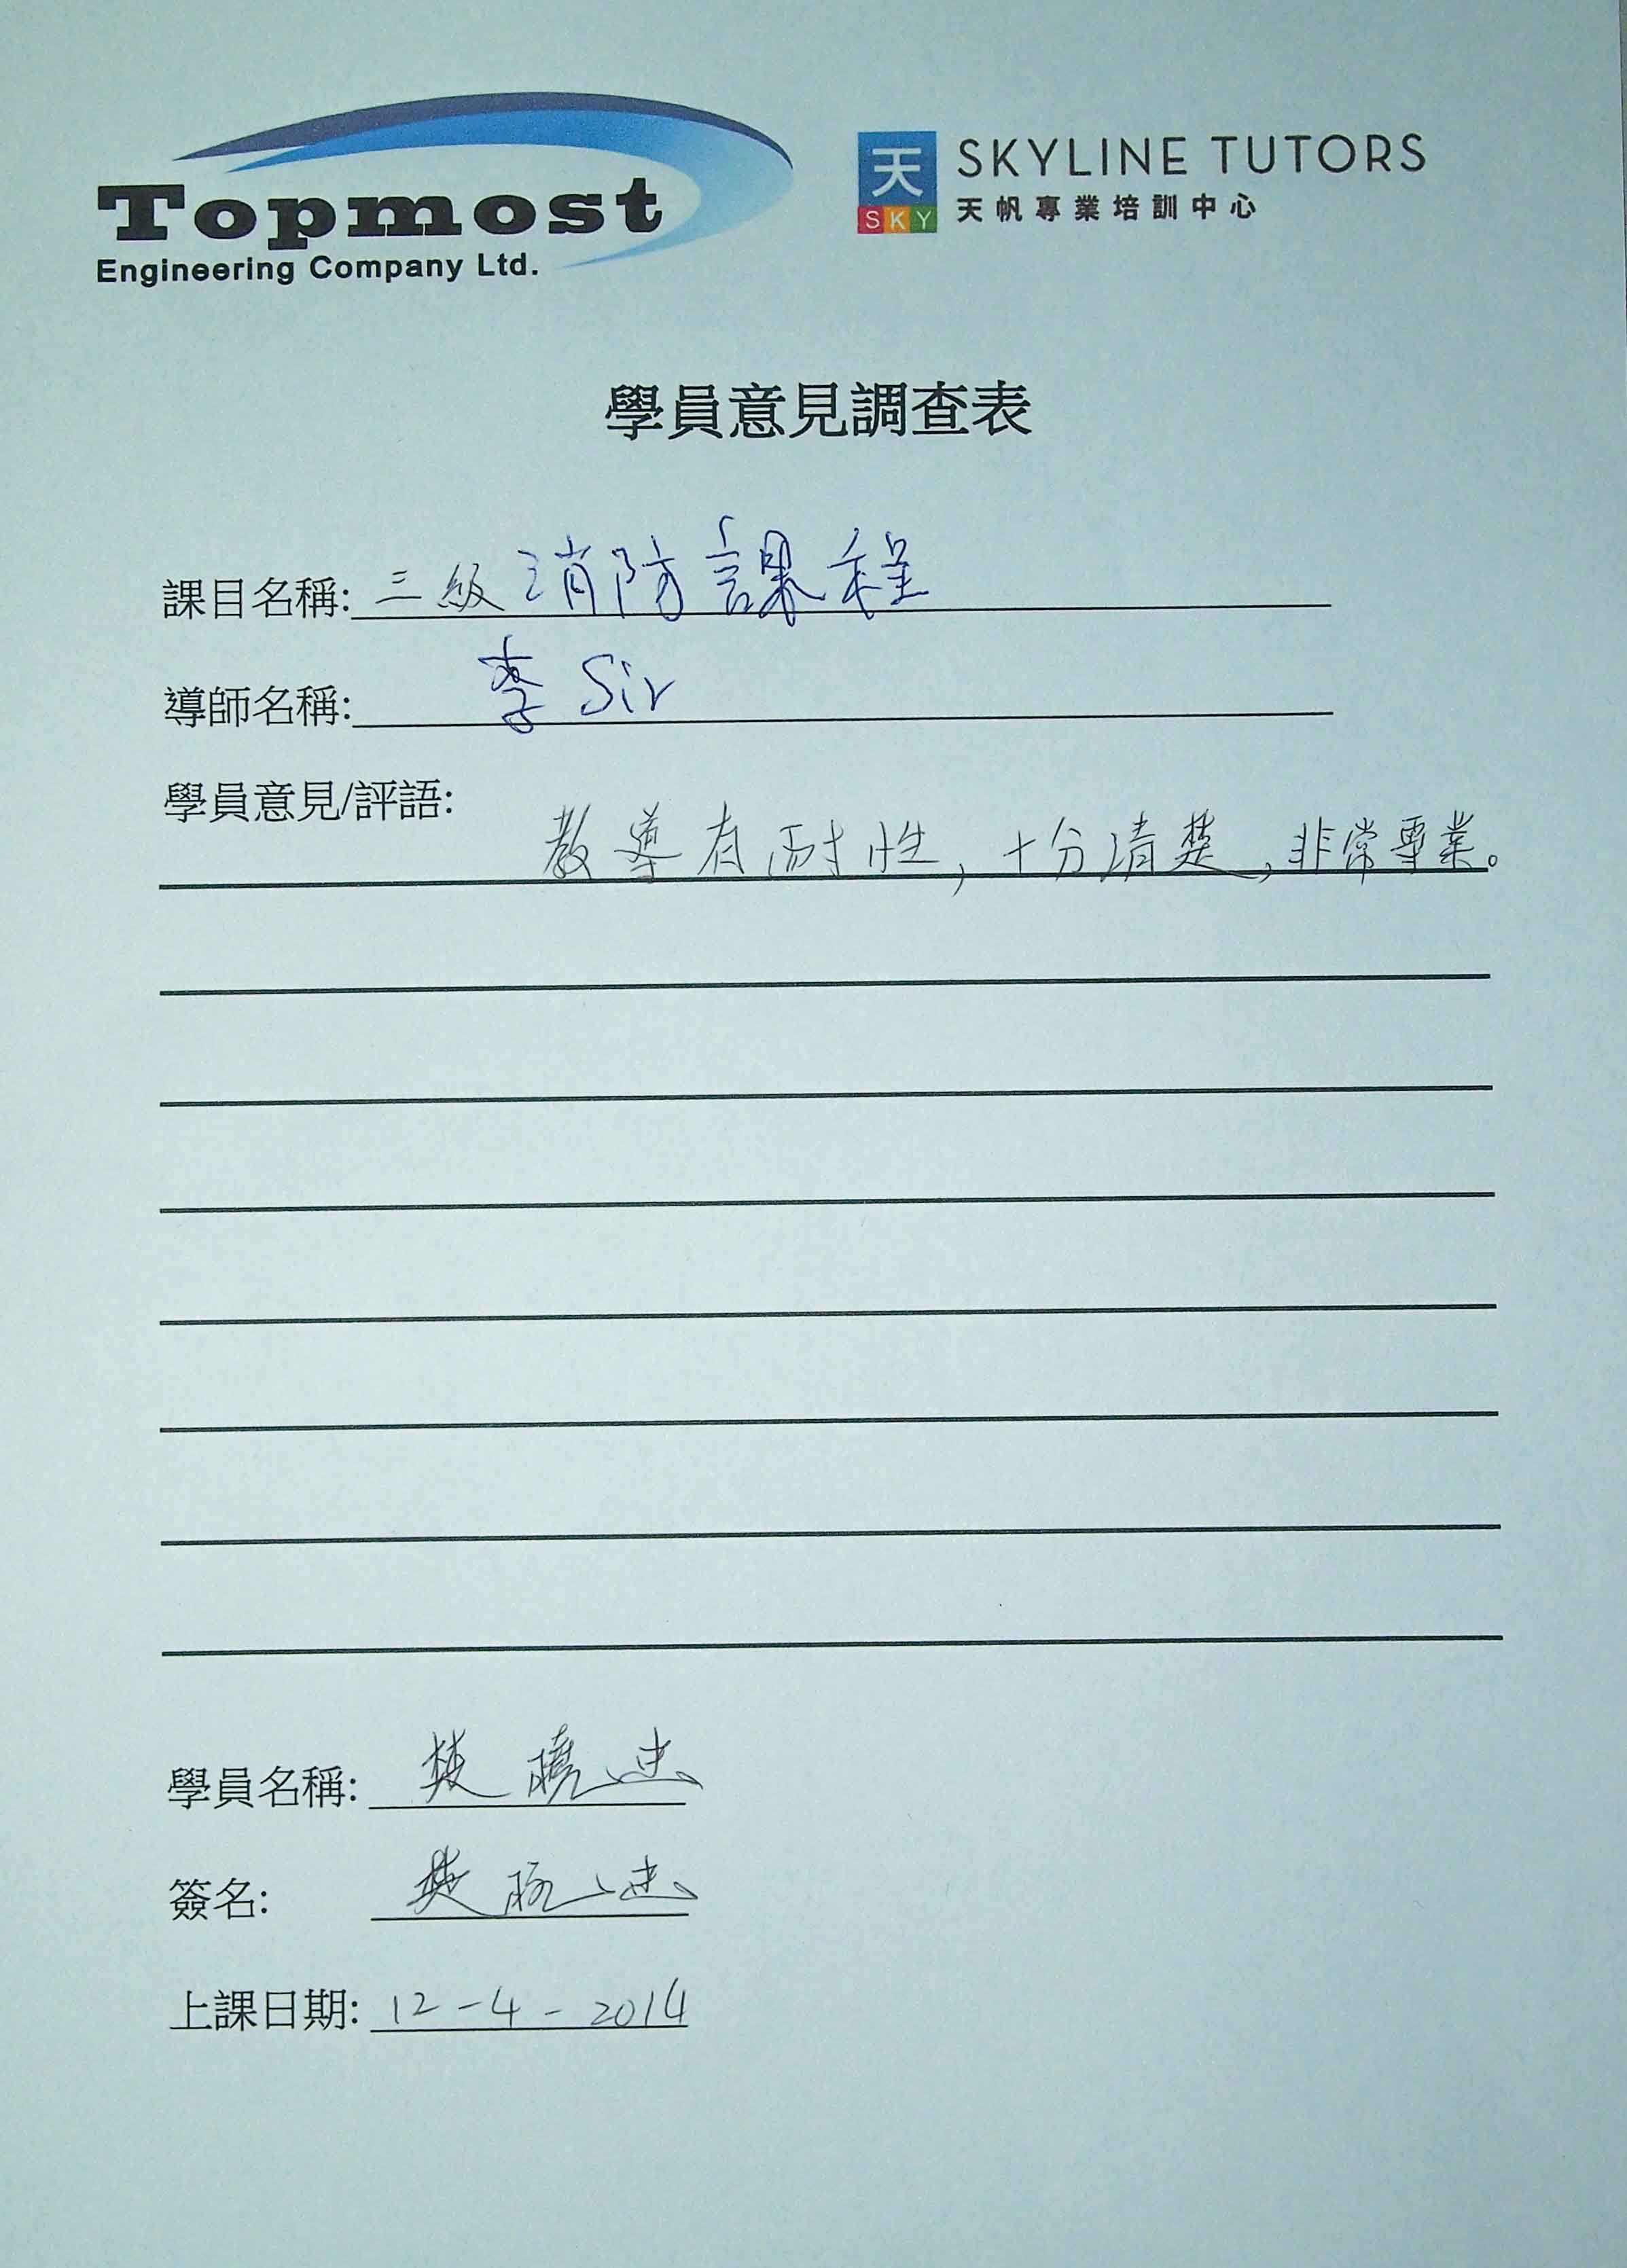 Topmost
Engineering Company Ltd.
天 SKY
SKYLINE TUTORS
天帆專業培訓中心
學員意見調查表
課目名稱: 三級消防課程
導師名稱: 李 Sir
學員意見/評語:
教導有耐性, 十分清楚, 非常專業。
學員名稱:
簽名:
上課日期: 12-4-2014